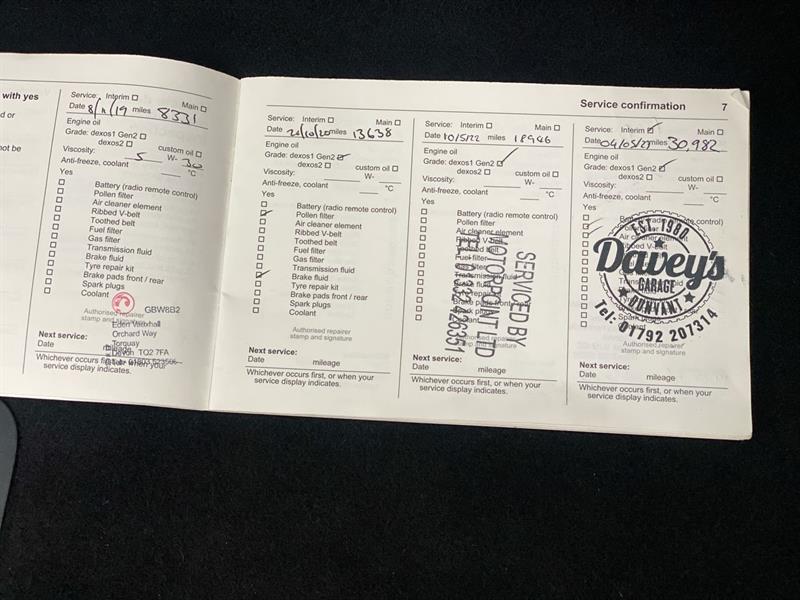 with yes
d or
not be
Service: Interim
Main
Date 8/11/19 miles 8331
Engine oil
Grade: dexos1 Gen2
dexos2
custom oil
Viscosity: 5 W- 30
Anti-freeze, coolant °C
Yes
Battery (radio remote control)
Pollen filter
Air cleaner element
Ribbed V-belt
Toothed belt
Fuel filter
Gas filter
Transmission fluid
Brake fluid
Tyre repair kit
Brake pads front / rear
Spark plugs
Coolant
GBW8B2
Authorised repairer
stamp and signature
Eden Vauxhall
Orchard Way
Torquay
Devon TQ2 7FA
Next service:
Date mileage
Whichever occurs first, or when your
service display indicates.
Service confirmation 7
Service: Interim
Main
Date 20/10/20 miles 13638
Engine oil
Grade: dexos1 Gen2
dexos2
custom oil
Viscosity: W-
Anti-freeze, coolant °C
Yes
Battery (radio remote control)
Pollen filter
Air cleaner element
Ribbed V-belt
Toothed belt
Fuel filter
Gas filter
Transmission fluid
Brake fluid
Tyre repair kit
Brake pads front / rear
Spark plugs
Coolant
Authorised repairer
stamp and signature
Next service:
Date mileage
Whichever occurs first, or when your
service display indicates.
Service: Interim
Main
Date 10/5/22 miles 18946
Engine oil
Grade: dexos1 Gen2
dexos2
custom oil
Viscosity: W-
Anti-freeze, coolant °C
Yes
Battery (radio remote control)
Pollen filter
Air cleaner element
Ribbed V-belt
Toothed belt
Fuel filter
Gas filter
Transmission fluid
SERVICED BY
MOTORPOINT LTD
Authorised repairer
stamp and signature
Next service:
Date mileage
Whichever occurs first, or when your
service display indicates.
Service: Interim
Main
Date 04/05/23 miles 30,982
Engine oil
Grade: dexos1 Gen2
dexos2
custom oil
Viscosity: W-
Anti-freeze, coolant °C
Yes
EST 1980
Davey's
GARAGE
DUNVANT
Tel: 01792 207314
Authorised repairer
stamp and signature
Next service:
Date mileage
Whichever occurs first, or when your
service display indicates.